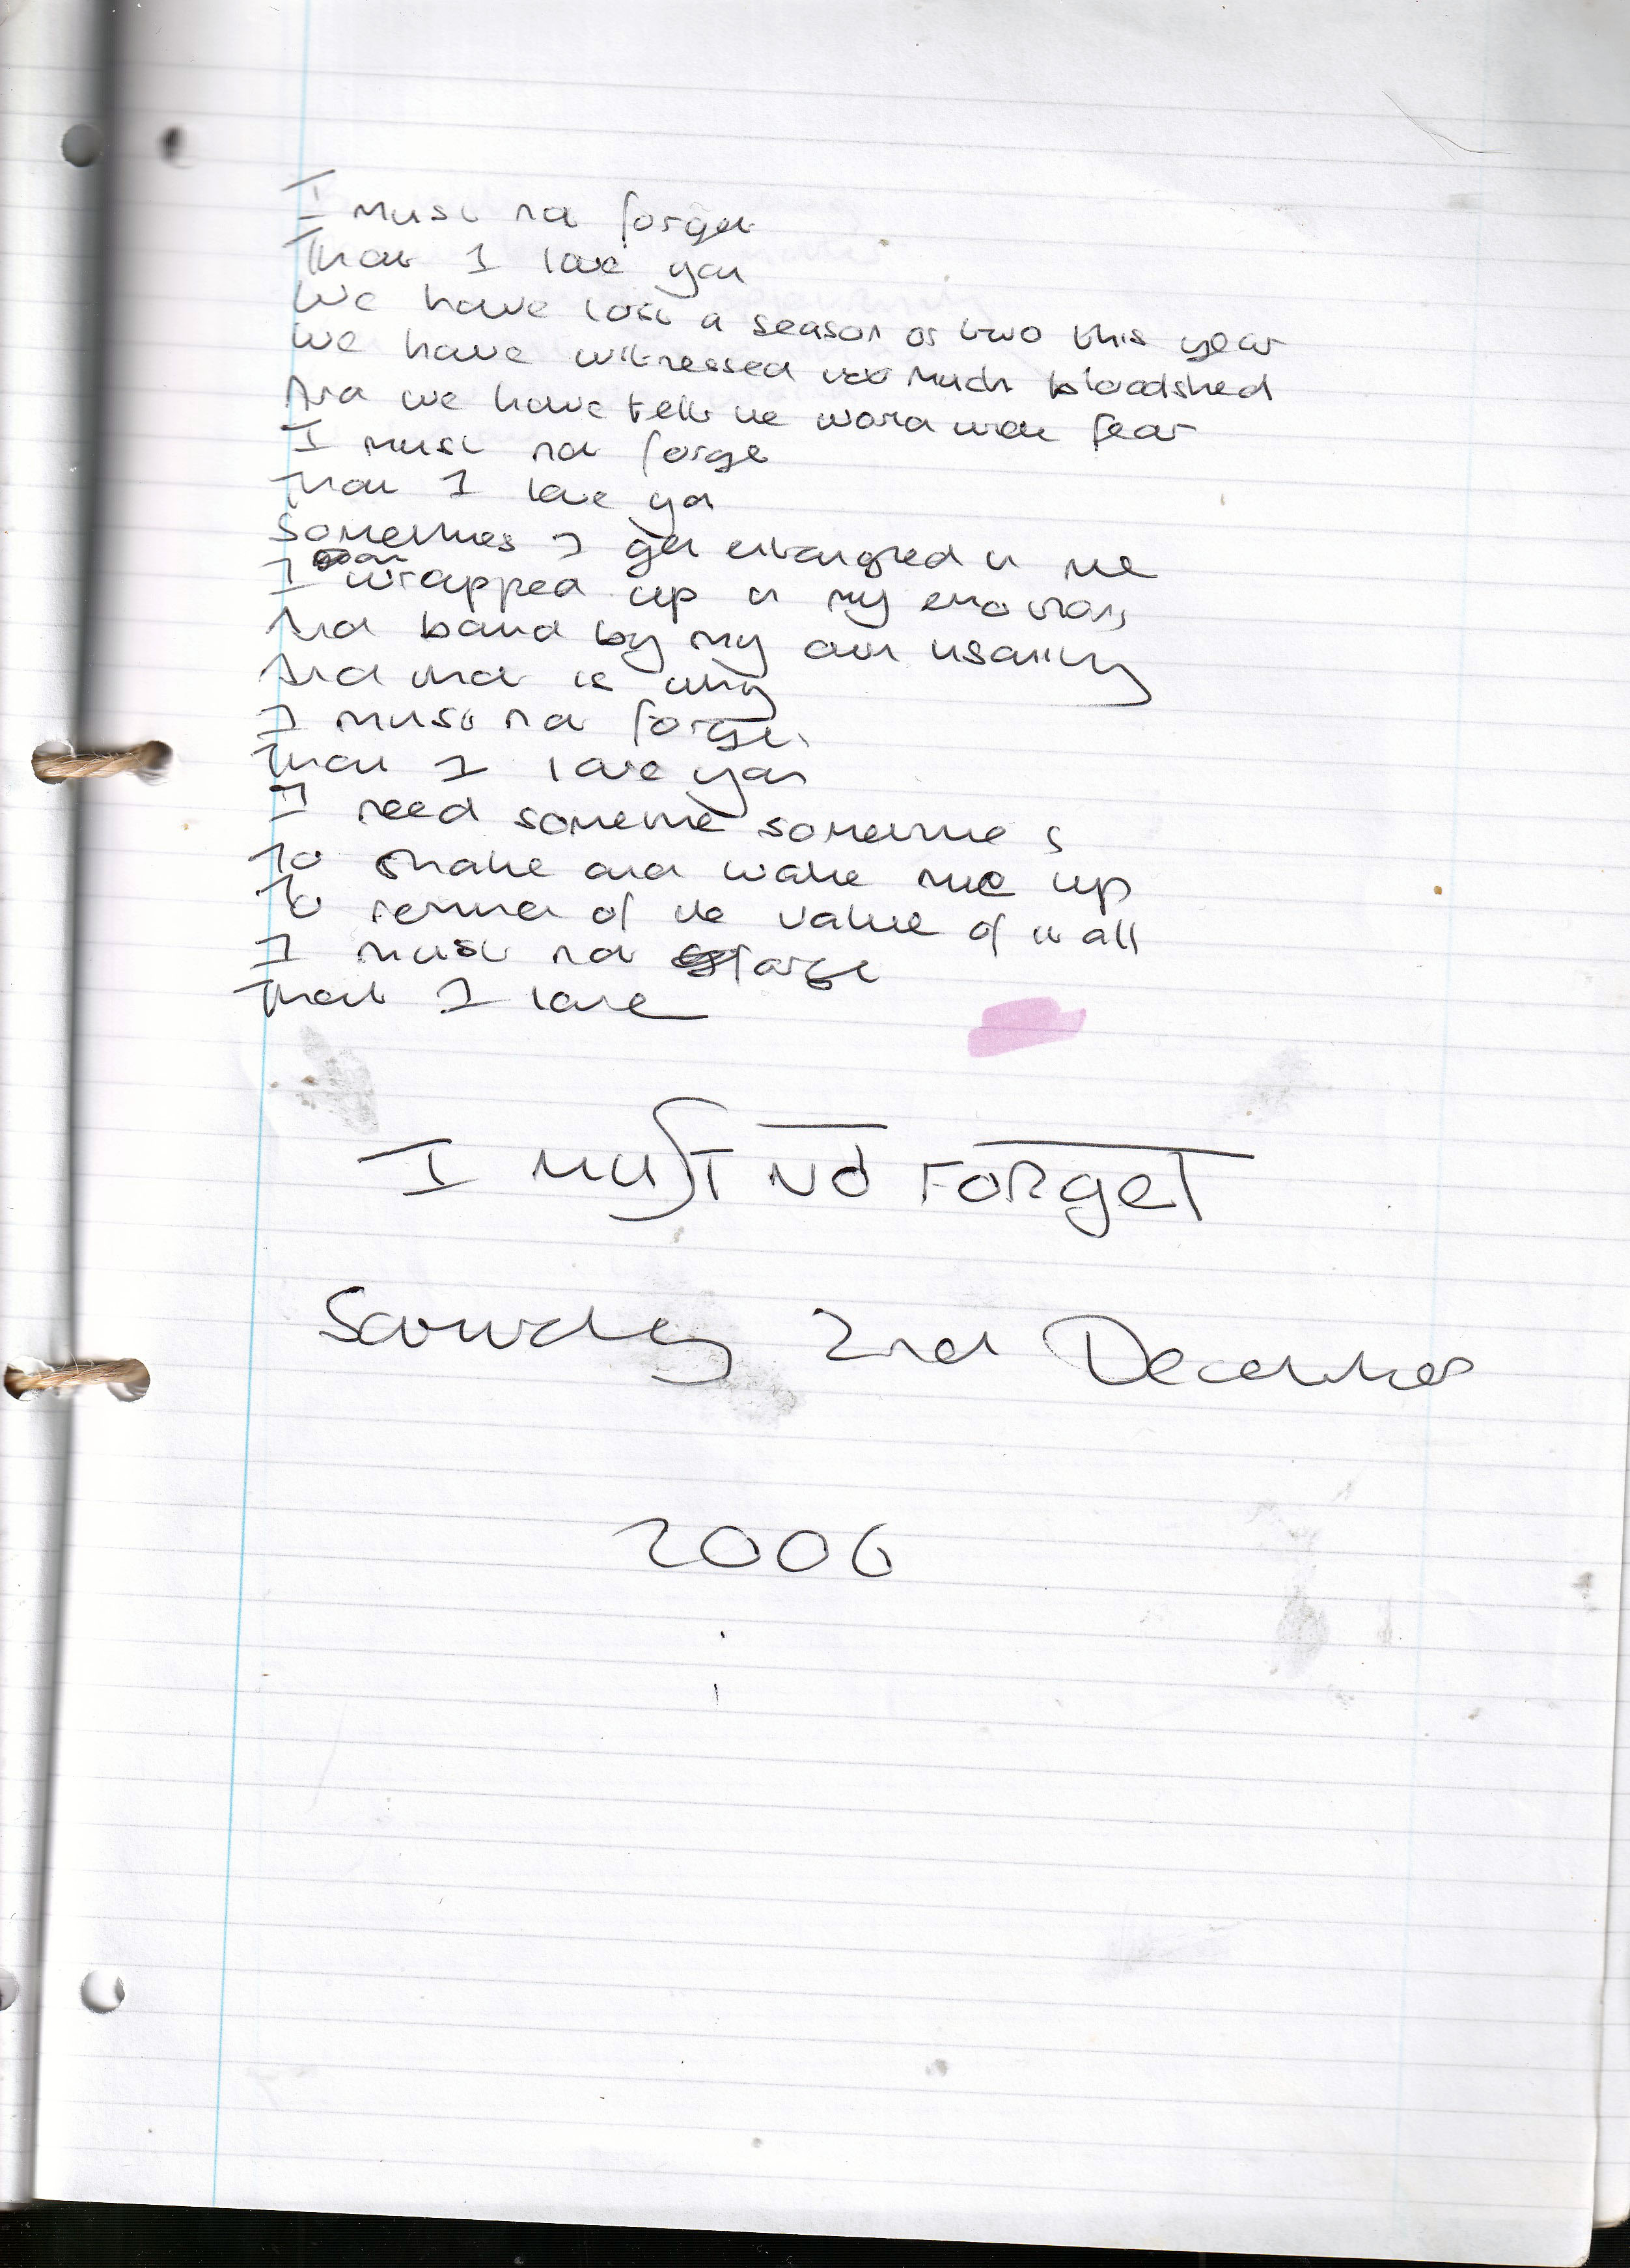 I must not forget
That I love you
We have lost a season or two this year
We have witnessed too much bloodshed
And we have felt the world with fear
I must not forget
That I love you
Sometimes I get entangled in me
I wrapped up in my emotions
And bound by my own
And that is why
I must not forget
That I love you
I need someone sometimes
To shake and wake me up
To remind of the value of it all
I must not forget
That I love
I MUST NOT FORGET
Saturday 2nd December
2006